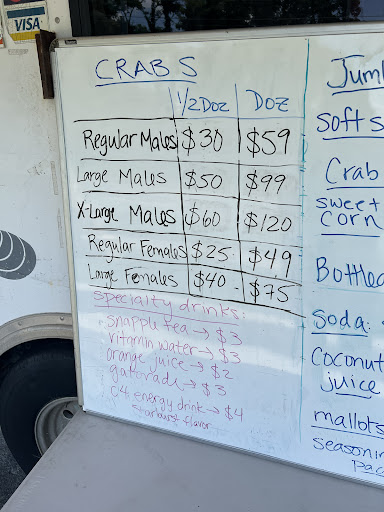 VISA
CRABS
1/2 Doz Doz
Regular Males $30 $59
Large Males $50 $99
X-Large Males $60 $120
Regular Females $25 $49
Large Females $40 $75
specialty drinks:
snapple tea → $3
vitamin water → $3
orange juice → $2
gatorade → $3
C4 energy drink → $4
starburst flavor
Jum
Soft s
Crab
sweet
corn
Bottle
Soda:
Coconut
juice
mallets
seasonin
pac